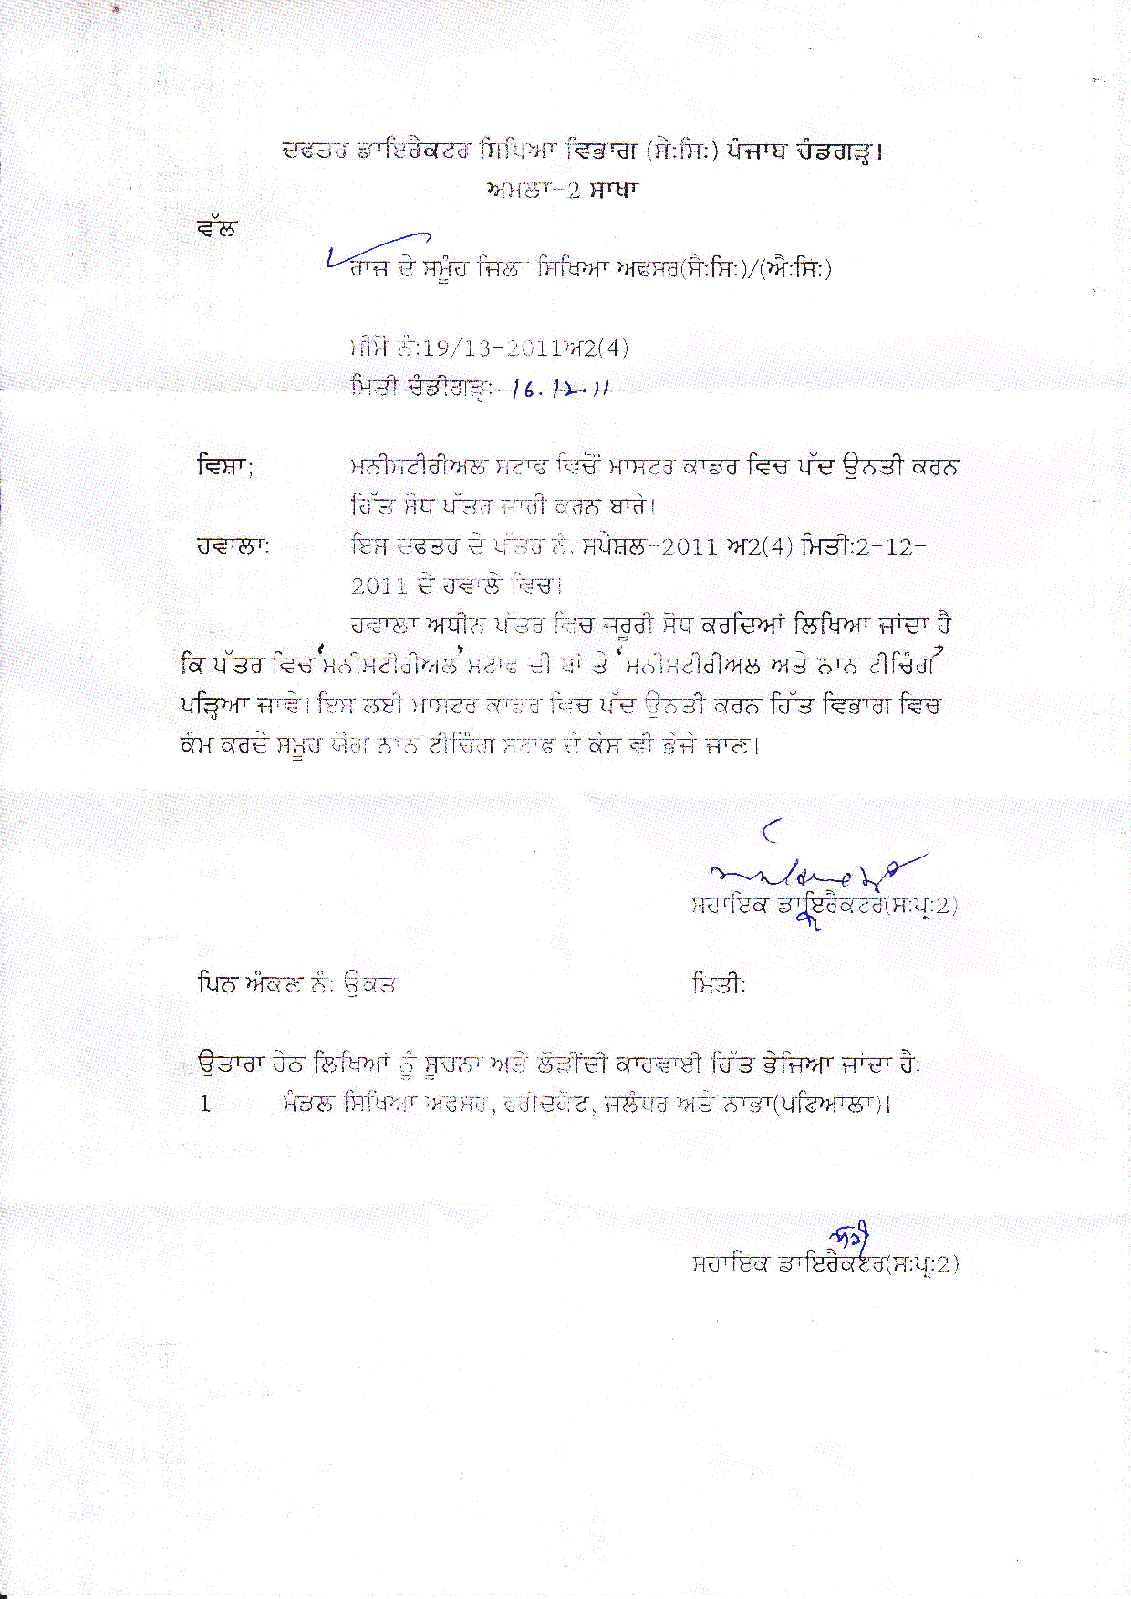 ਦਫਤਰ ਡਾਇਰੈਕਟਰ ਸਿਖਿਆ ਵਿਭਾਗ (ਸੈ:ਸਿ:) ਪੰਜਾਬ ਚੰਡਗੜ੍ਹ।
ਅਮਲਾ-2 ਸਾਖਾ
ਵੱਲ
ਰਾਜ ਦੇ ਸਮੂੰਹ ਜਿਲਾ ਸਿਖਿਆ ਅਫਸਰ(ਸੈ:ਸਿ:)/(ਐ:ਸਿ:)
ਮੀਮੋ ਨੰ:19/13-2011ਅ2(4)
ਮਿਤੀ ਚੰਡੀਗੜ੍ਹ: 16.12.11
ਵਿਸ਼ਾ; ਮਨੀਸਟੀਰੀਅਲ ਸਟਾਫ ਵਿਚੋਂ ਮਾਸਟਰ ਕਾਡਰ ਵਿਚ ਪੱਦ ਉਨਤੀ ਕਰਨ
ਹਿੱਤ ਸੋਧ ਪੱਤਰ ਜਾਰੀ ਕਰਨ ਬਾਰੇ।
ਹਵਾਲਾ: ਇਸ ਦਫਤਰ ਦੇ ਪੱਤਰ ਨੰ. ਸਪੈਸ਼ਲ-2011 ਅ2(4) ਮਿਤੀ:2-12-
2011 ਦੇ ਹਵਾਲੇ ਵਿਚ।
ਹਵਾਲਾ ਅਧੀਨ ਪੱਤਰ ਵਿਚ ਜਰੂਰੀ ਸੋਧ ਕਰਦਿਆਂ ਲਿਖਿਆ ਜਾਂਦਾ ਹੈ
ਕਿ ਪੱਤਰ ਵਿਚ 'ਮਨੀਸਟੀਰੀਅਲ' ਸਟਾਫ ਦੀ ਥਾਂ ਤੇ 'ਮਨੀਸਟੀਰੀਅਲ ਅਤੇ ਨਾਨ ਟੀਚਿੰਗ'
ਪੜ੍ਹਿਆ ਜਾਵੇ। ਇਸ ਲਈ ਮਾਸਟਰ ਕਾਡਰ ਵਿਚ ਪੱਦ ਉਨਤੀ ਕਰਨ ਹਿੱਤ ਵਿਭਾਗ ਵਿਚ
ਕੰਮ ਕਰਦੇ ਸਮੂਹ ਯੋਗ ਨਾਨ ਟੀਚਿੰਗ ਸਟਾਫ ਦੇ ਕੇਸ ਵੀ ਭੇਜੇ ਜਾਣ।
ਸਹਾਇਕ ਡਾਇਰੈਕਟਰ(ਸ:ਪ੍ਰ:2)
ਪਿਨ ਅੰਕਣ ਨੰ: ਉਕਤ ਮਿਤੀ:
ਉਤਾਰਾ ਹੇਠ ਲਿਖਿਆਂ ਨੂੰ ਸੂਚਨਾ ਅਤੇ ਲੋੜੀਂਦੀ ਕਾਰਵਾਈ ਹਿੱਤ ਭੇਜਿਆ ਜਾਂਦਾ ਹੈ:
1 ਮੰਡਲ ਸਿਖਿਆ ਅਫਸਰ, ਫਰੀਦਕੋਟ, ਜਲੰਧਰ ਅਤੇ ਨਾਭਾ(ਪਟਿਆਲਾ)।
ਸਹਾਇਕ ਡਾਇਰੈਕਟਰ(ਸ:ਪ੍ਰ:2)